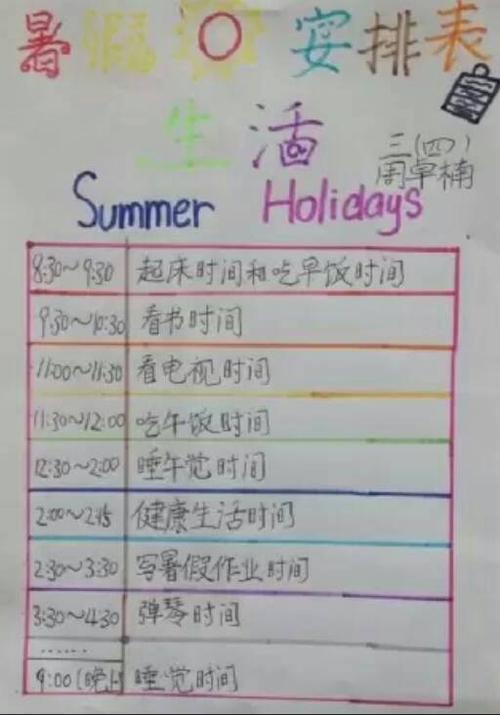 暑假 安排表
生活
三(四)
周卓楠
Summer Holidays
8:30~9:30 起床时间和吃早饭时间
9:30~10:30 看书时间
11:00~11:30 看电视时间
11:30~12:00 吃午饭时间
12:30~2:00 睡午觉时间
2:00~2:15 健康生活时间
2:30~3:30 写暑假作业时间
3:30~4:30 弹琴时间
……
9:00(晚上) 睡觉时间